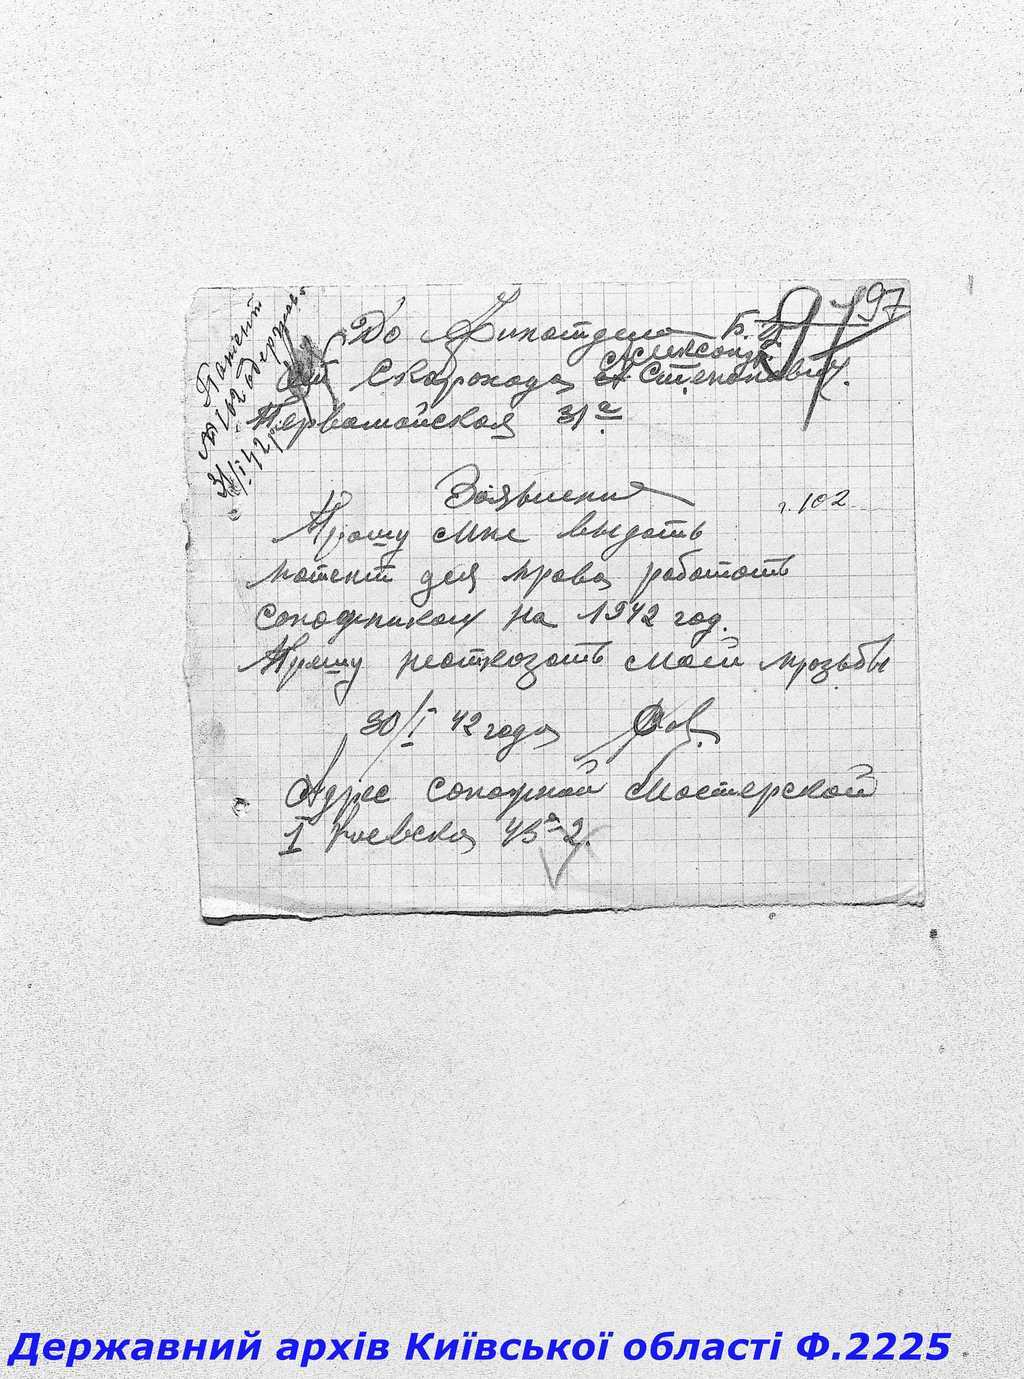 97
Патент
№ 102 одержав
31/I 42 р
До Финотдела Б. Ц.
от Скарохода А. Степанович.
Александр
Первомайская 31а
Заявление
г. 102
Прошу мне выдать
потент для права работать
сапожником на 1942 год.
Прошу неотказать моей прозьбы
30/I 42 года
Адрес сапожной мостерской
I Киевская 43а-2.
Державний архів Київської області Ф.2225